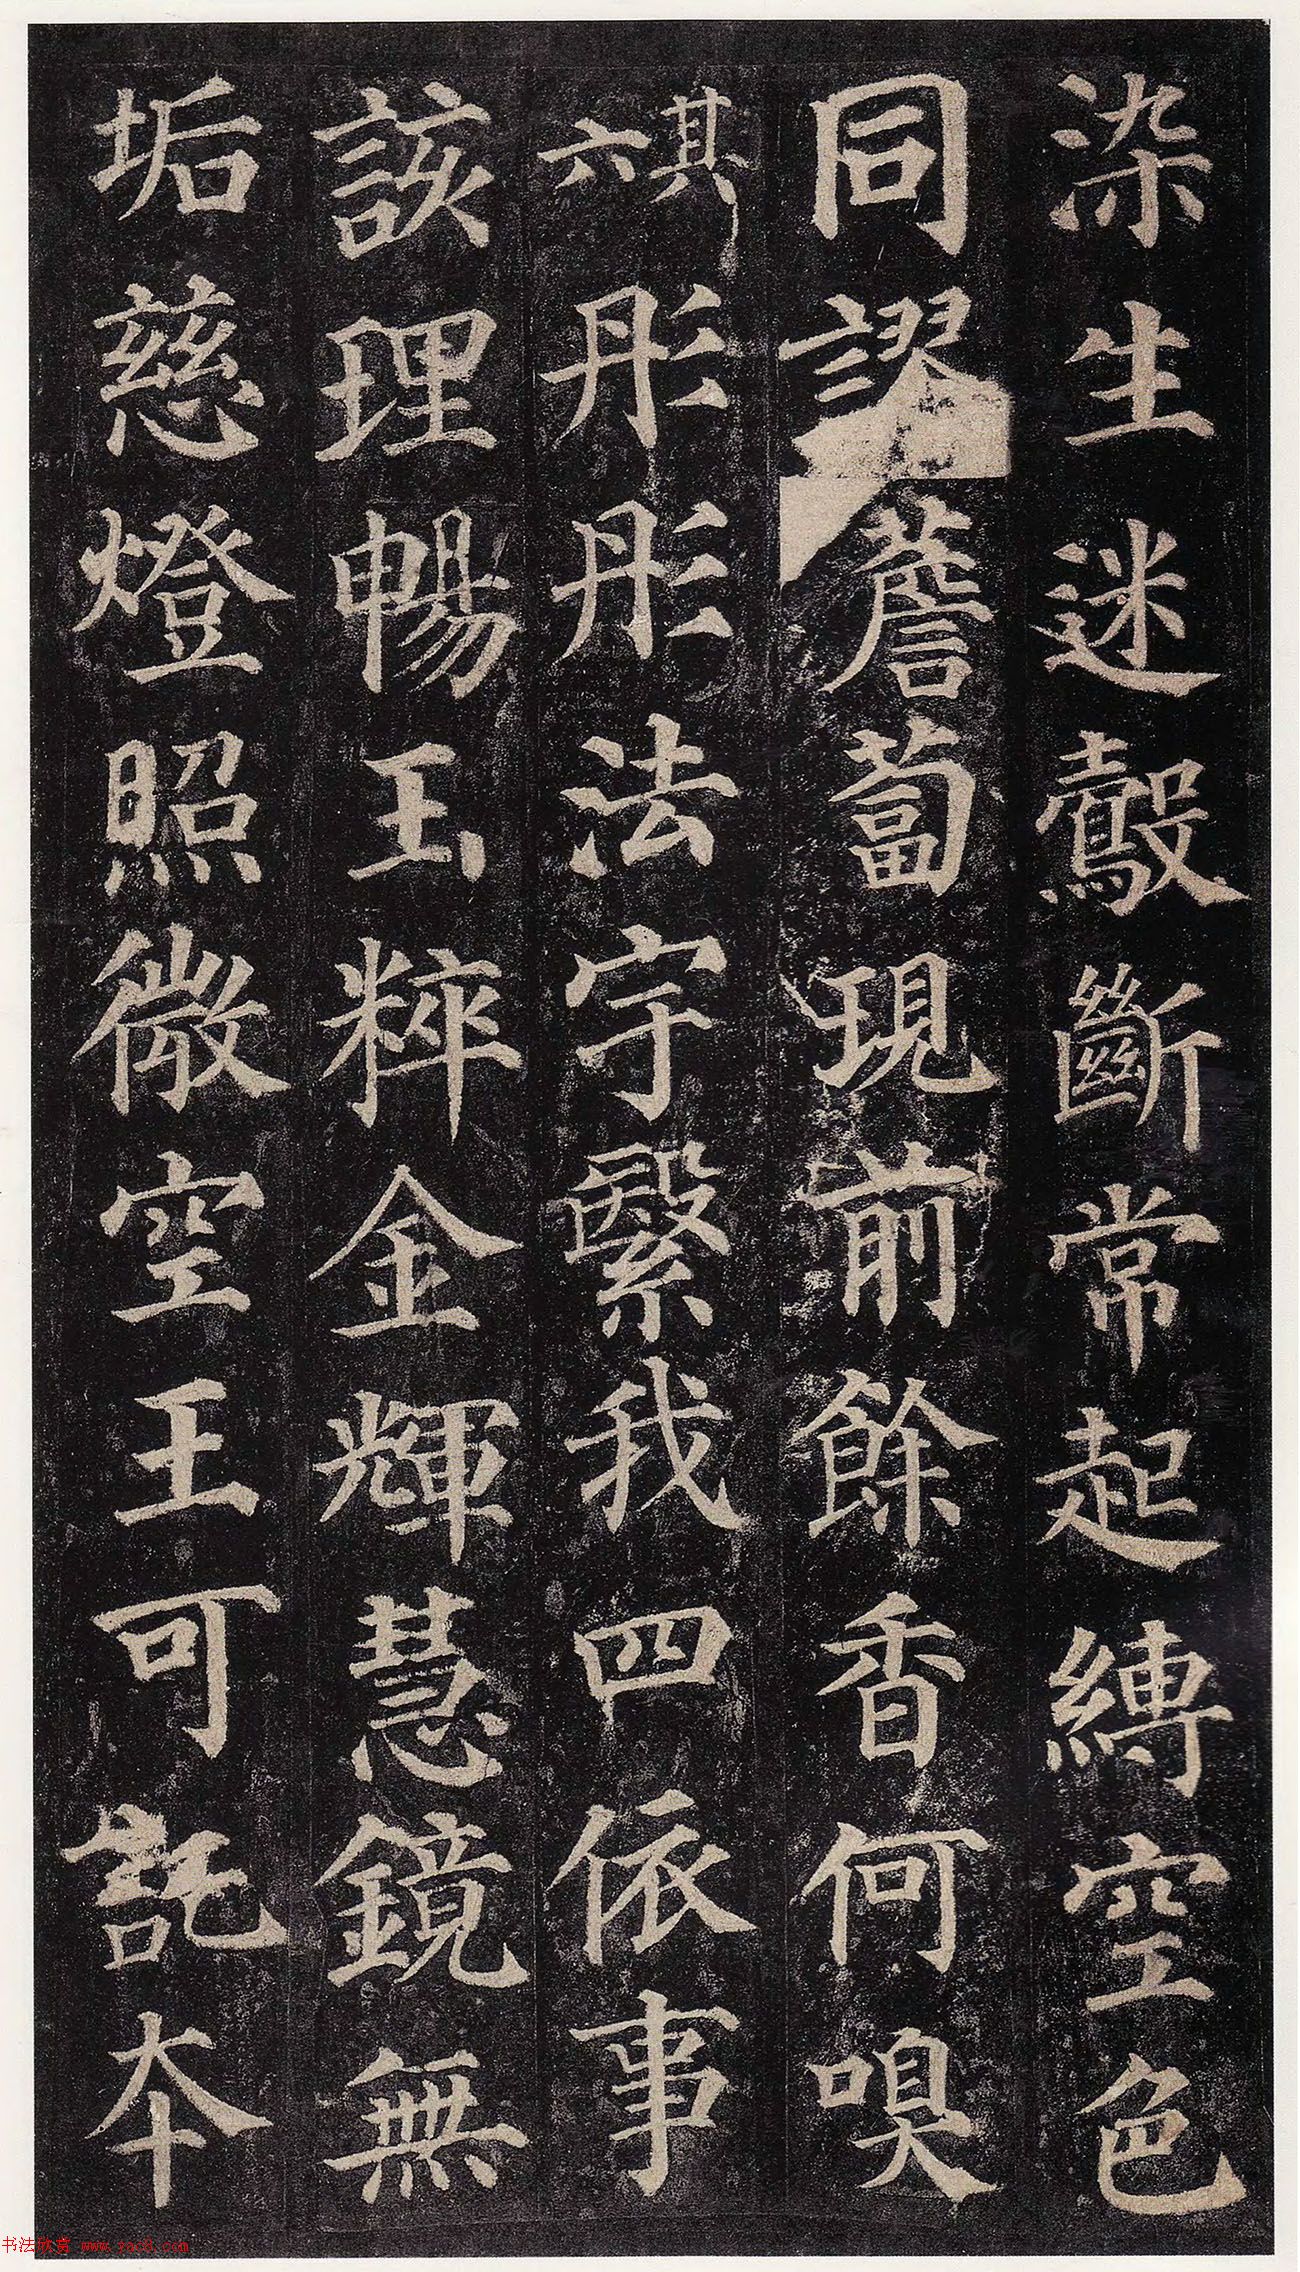 染生迷鷇斷常起縛空色
同謬薝蔔現前餘香何嗅
其六彤彤法宇繄我四依事
該理暢玉粹金輝慧鏡無
垢慈燈照微空王可託本
书法欣赏 www.yac8.com